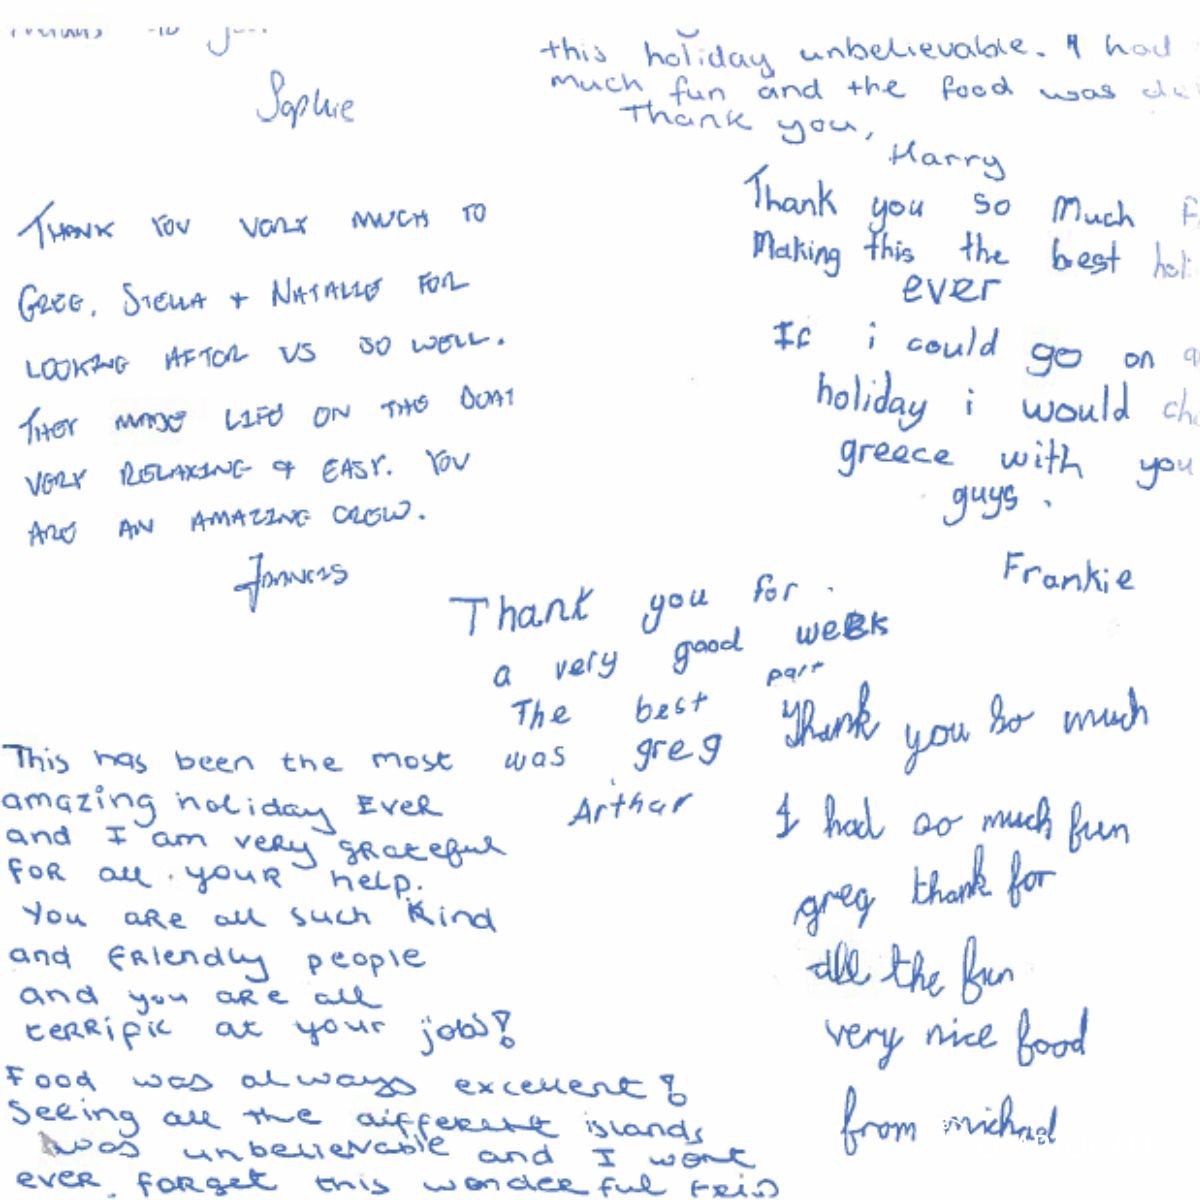 Sophie
this holiday unbelievable. I had
much fun and the food was
Thank you,
Harry
THANK YOU VERY MUCH TO
GREG, STELLA + NATALIE FOR
LOOKING AFTER US SO WELL.
THEY MADE LIFE ON THE BOAT
VERY RELAXING & EASY. YOU
ARE AN AMAZING CREW.
Francis
Thank you so Much
Making this the best
ever
If i could go on
holiday i would
greece with you
guys.
Frankie
Thank you for
a very good week
The best part
was greg
Arthur
This has been the most
amazing holiday EVER
and I am very grateful
FOR all YOUR help.
You are all such kind
and friendly people
and you are all
terrific at your jobs!
Food was always excellent!
Seeing all the different islands
was unbelievable and I wont
ever forget this wonderful trip
Thank you so much
I had so much fun
greg thank for
all the fun
very nice food
from michael